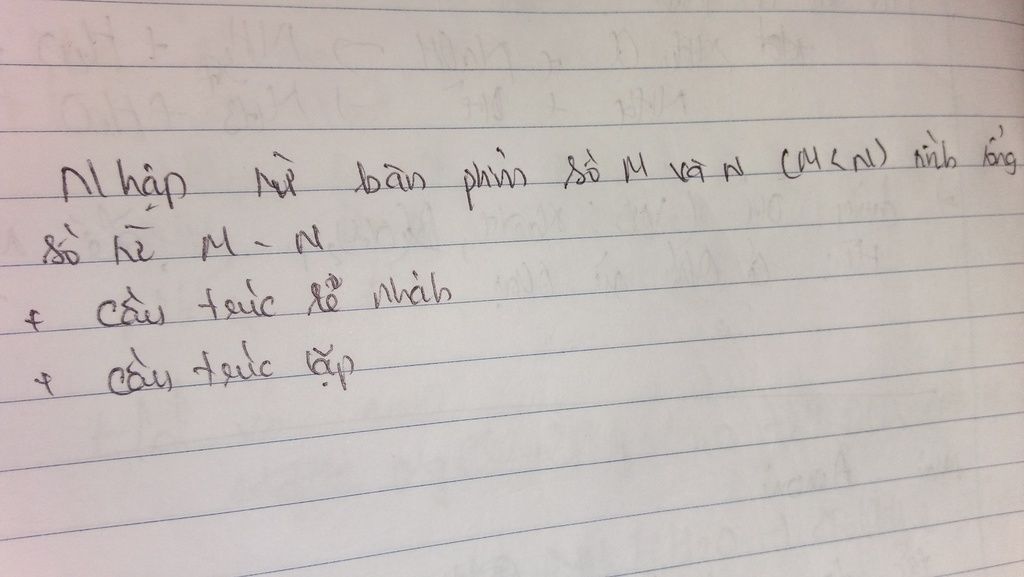 Nhập từ bàn phím số M và N (M < N) tính tổng
số từ M - N
+ cấu trúc rẽ nhánh
+ cấu trúc lặp